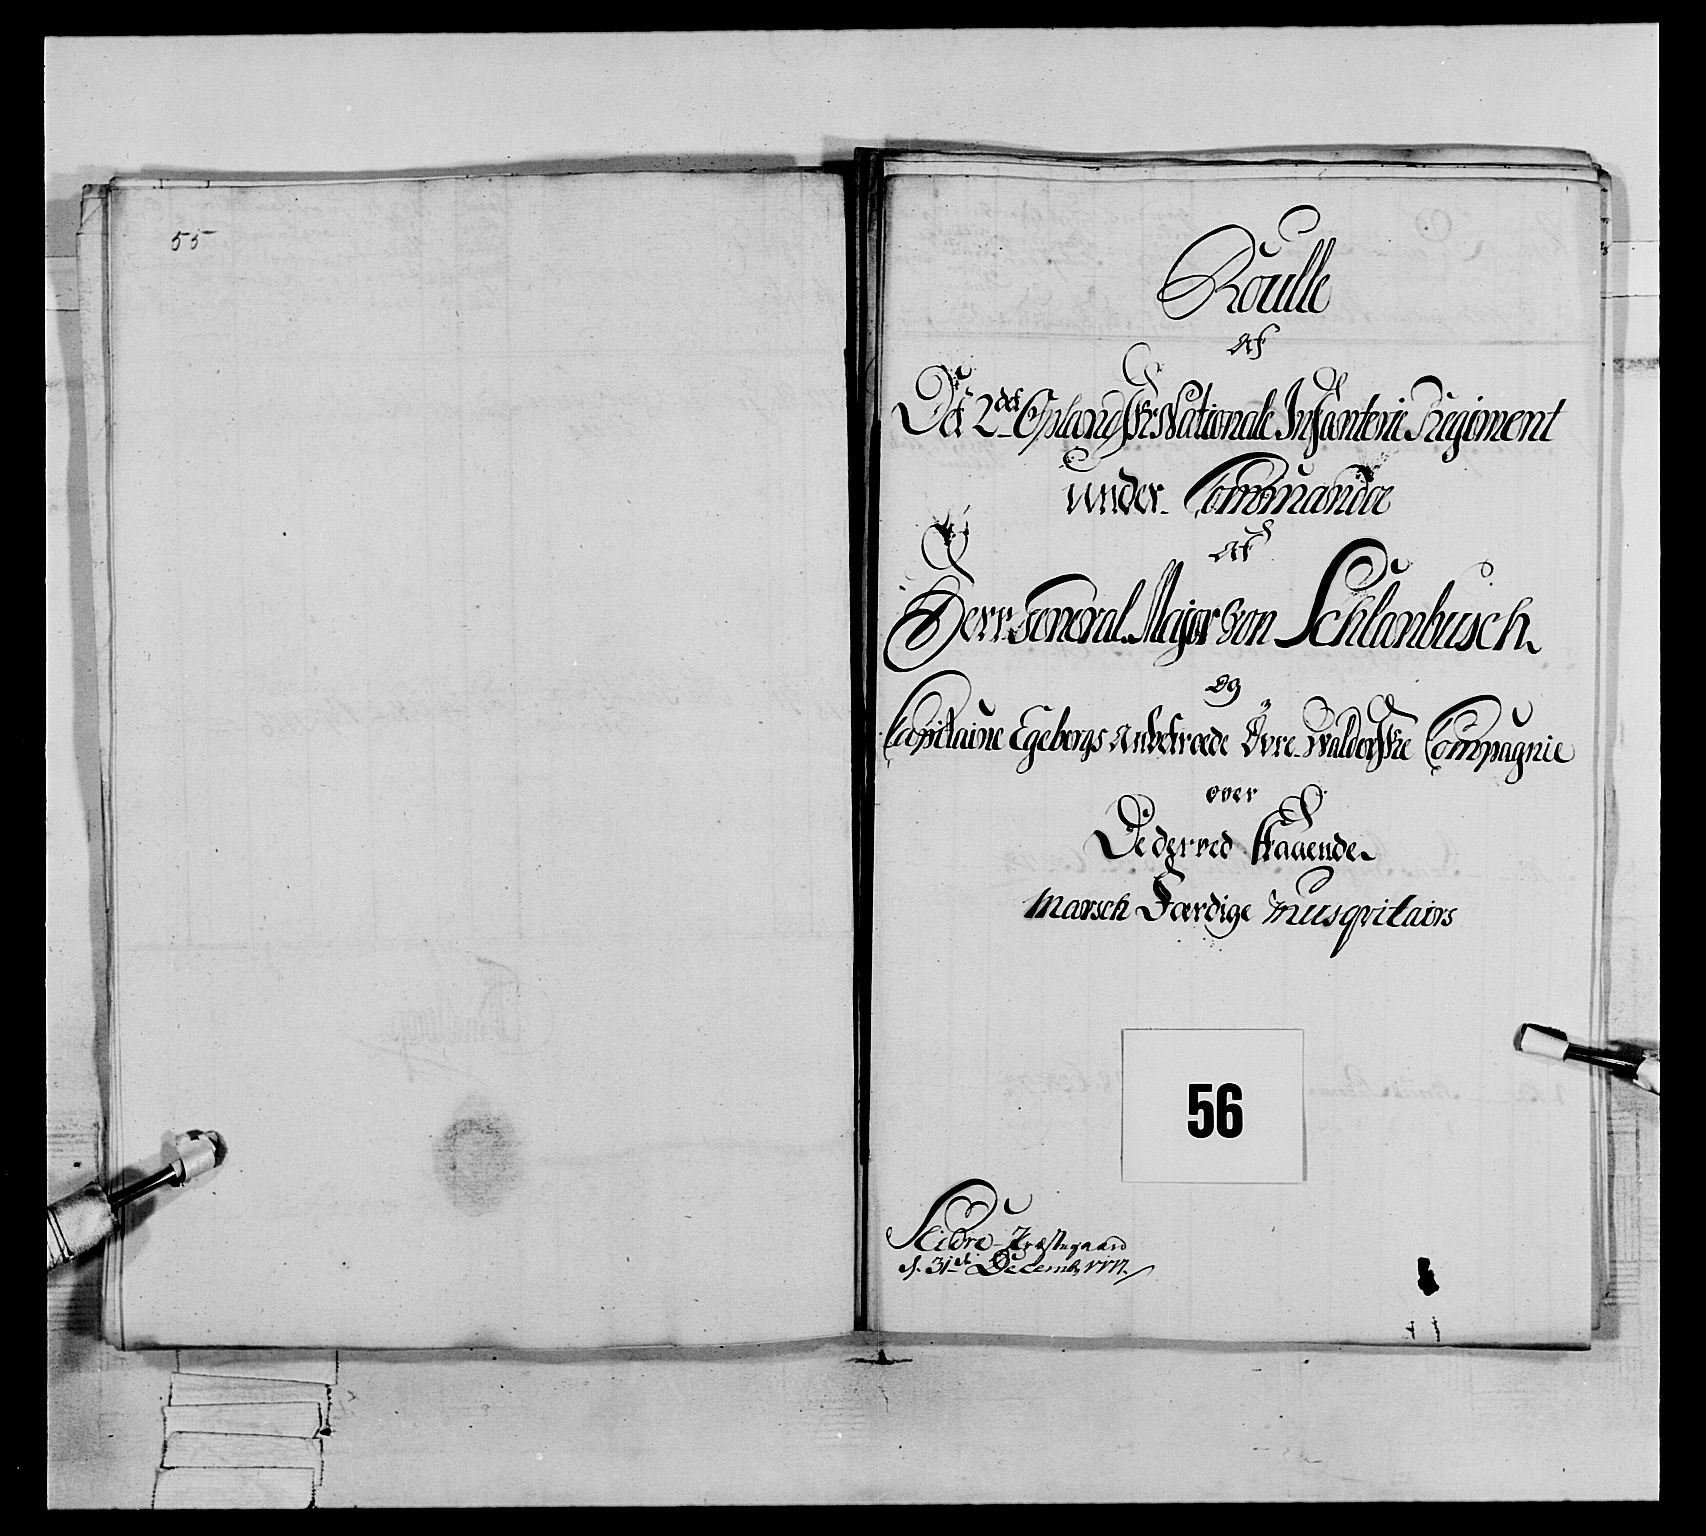 55
Roulle
Af
Det 2det Oplandske Nationale Infanterie Regiment
under Commandoe
Af
Herr General Major von Schlanbusch
og
Capitaine Egebergs Anbetroede Øvre Walderske Compagnie
over
De derved staaende
Marsch Færdige Musqvitairs
56
Slidre Præstegaard
d. 31te Decemb: 1777.